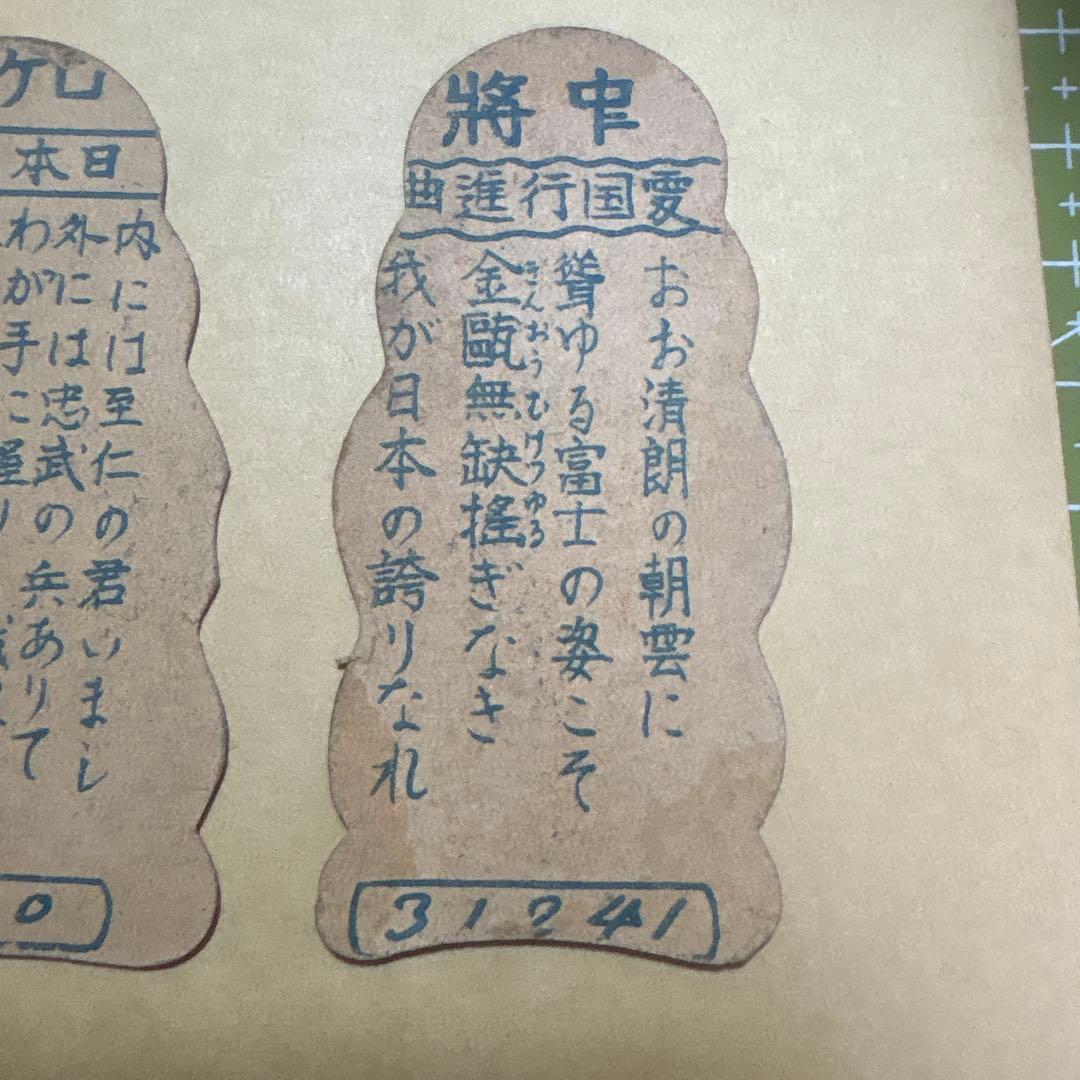 將中
曲進行国愛
おお清朗の朝雲に
聳ゆる富士の姿こそ
金甌無缺搖ぎなき
きんおうむけつゆる
我が日本の誇りなれ
31241
本日
内には至仁の君いまし
外には忠武の兵ありて
わが手に握り
0